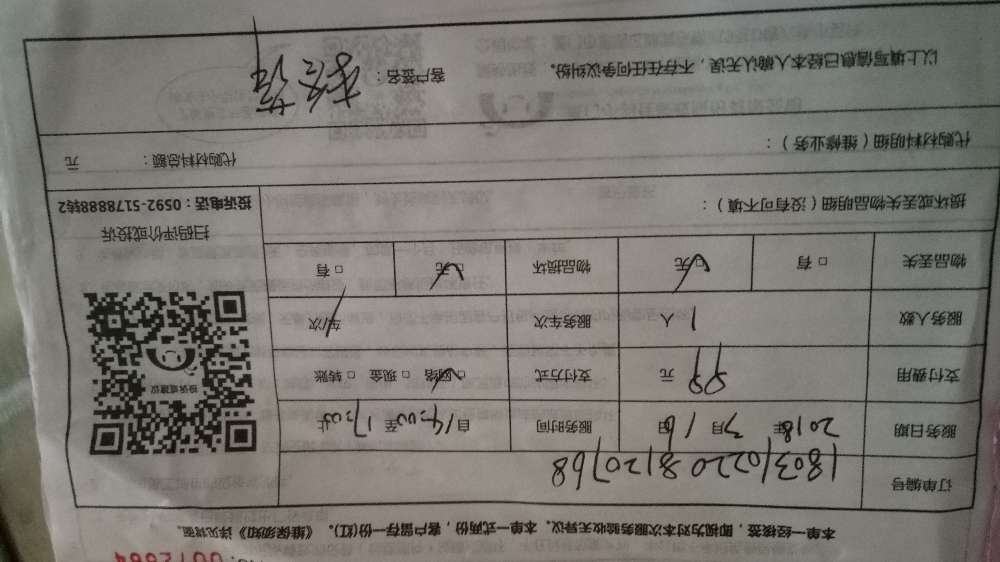 0012664
本单一经签签，即视为对本次服务验收无异议。本单一式两份，客户留存一份(红)。《维保须知》详见背面。
订单编号 1803102208120768
服务日期 2018年3月16日 服务时间 自14:00至17:00止
支付费用 99元 支付方式 □网络 □现金 □转账
服务人数 1人 服务车次 车/次
物品丢失 □有 □无 物品损坏 □无 □有
投诉或建议
扫码评价或投诉
投诉电话：0592-5178888转2
损坏或丢失物品明细（没有可不填）：
代购材料明细（维修业务）：
代购材料总额： 元
以上填写信息已经本人确认无误，不存在任何争议纠纷。 客户签名：